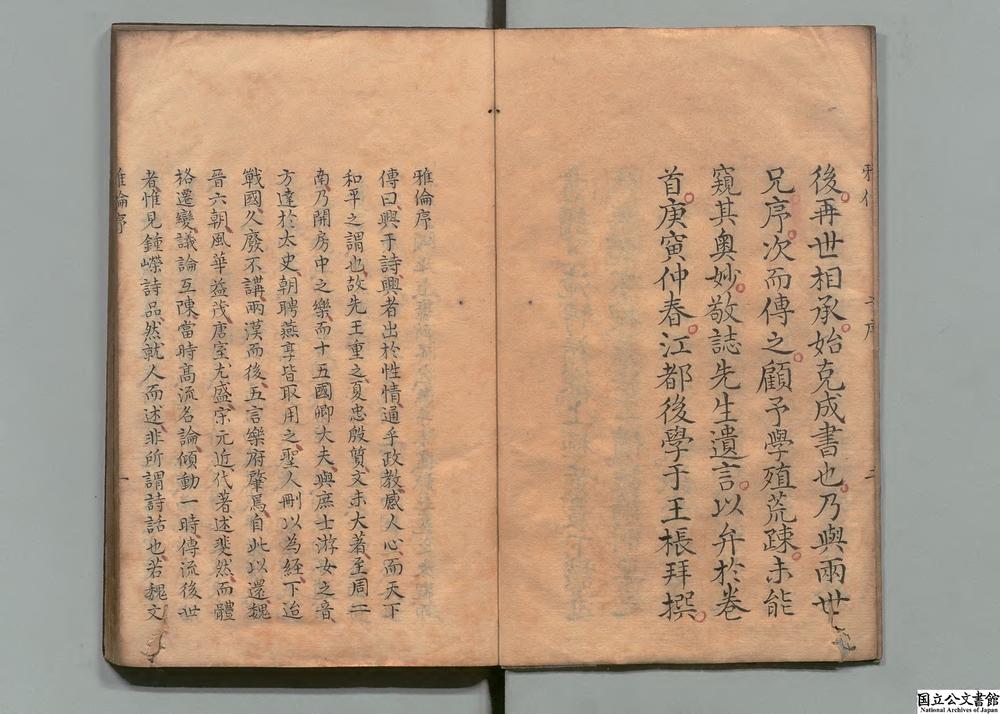 後再世相承始克成書也乃與兩世
兄序次而傳之顧予學殖荒踈未能
窺其奥妙敬誌先生遺言以弁於卷
首庚寅仲春江都後學于王棖拜撰
雅倫序
傳曰興于詩興者出於性情通乎政教感人心而天下
和平之謂也故先王重之夏忠殷質文未大著至周二
南乃開房中之樂而十五國卿大夫與庶士游女之音
方達於太史朝聘燕享皆取用之聖人刪以為經下迨
戰國久廢不講兩漢而後五言樂府肇焉自此以還魏
晉六朝風華益茂唐室尤盛宗元近代著述斐然而體
格遷變議論互陳當時髙流名論傾動一時傳流後世
者惟見鍾嶸詩品然就人而述非所謂詩話也若魏文
雅倫序
一
国立公文書館
National Archives of Japan